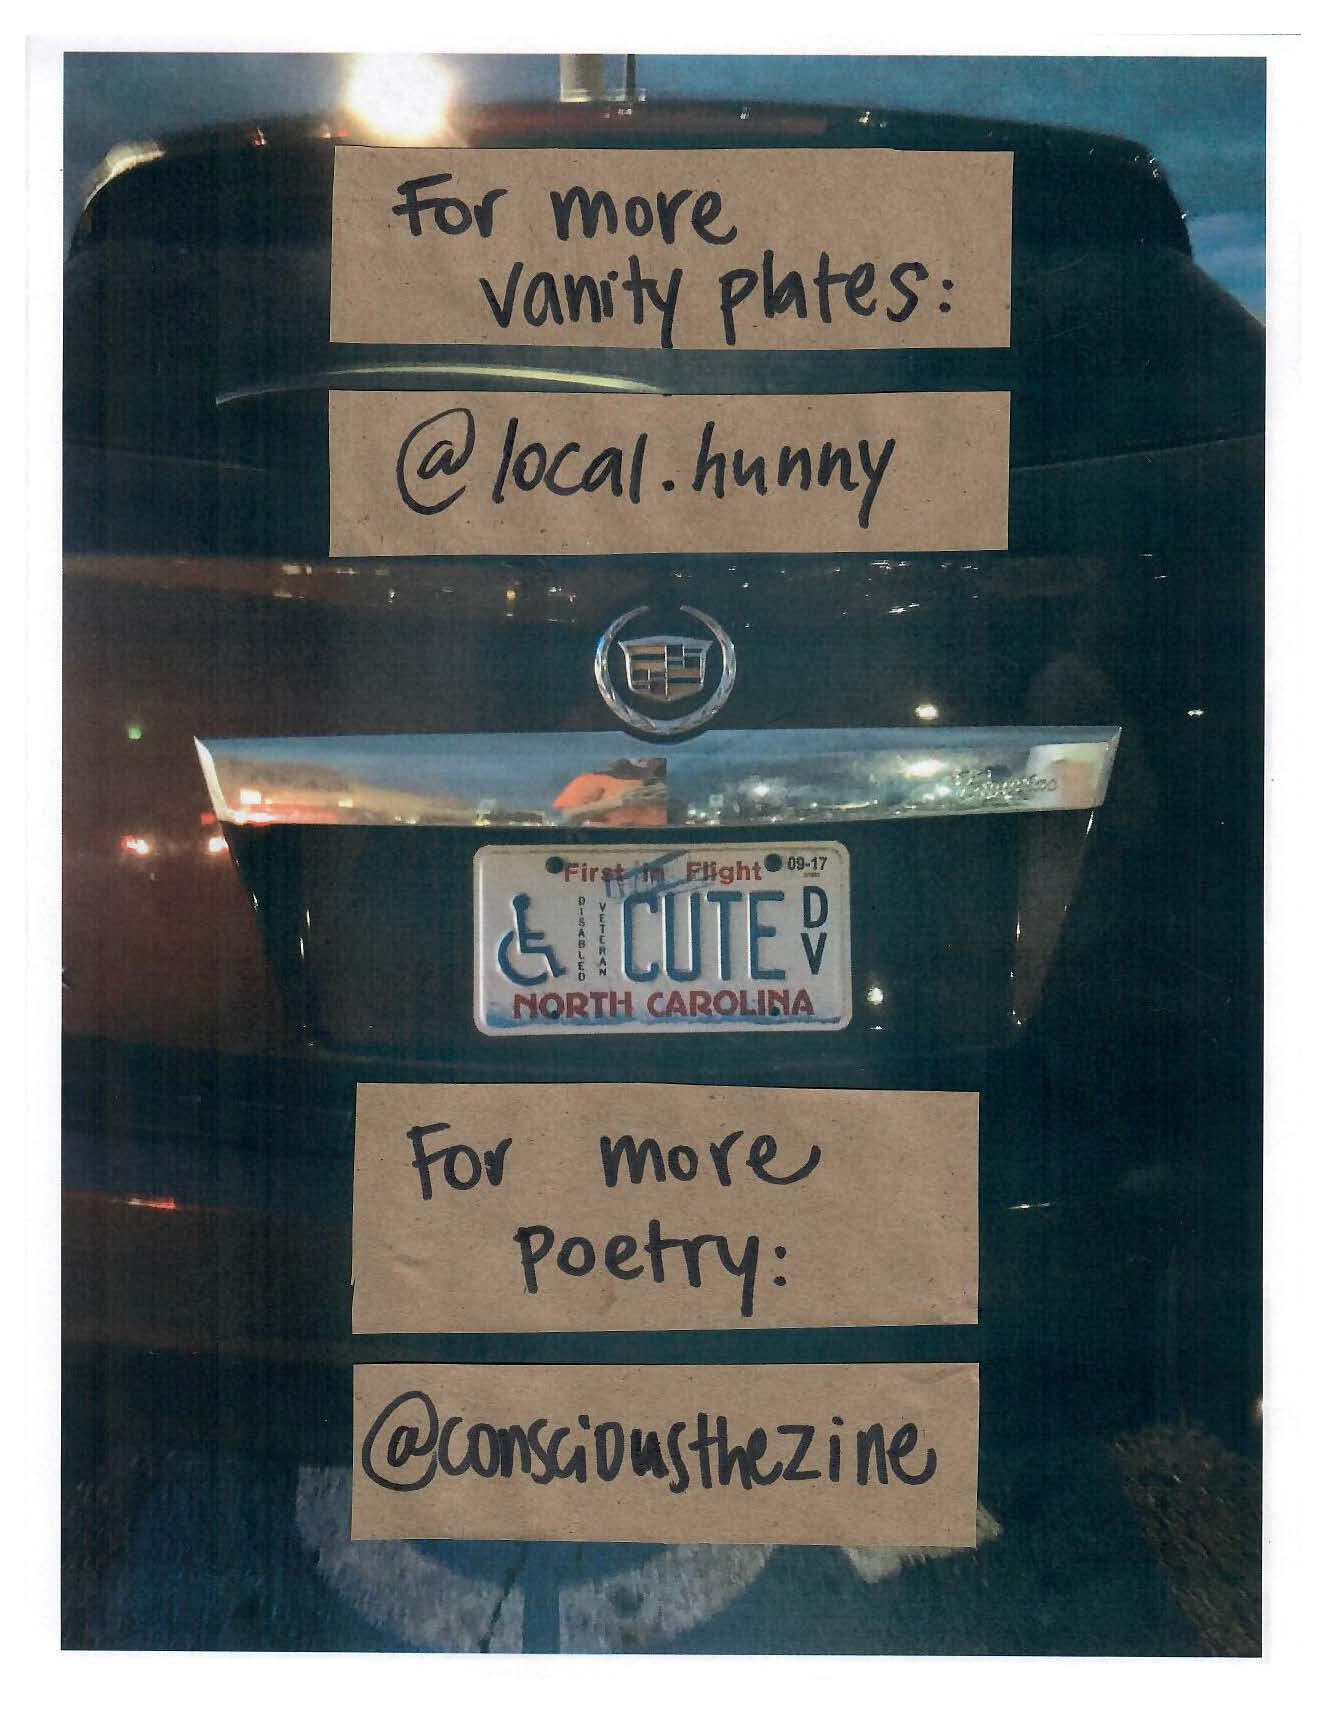 For more
vanity plates:
@local.hunny
First in Flight 09-17
DISABLED VETERAN CUTE DV
NORTH CAROLINA
For more
poetry:
@consciousthezine